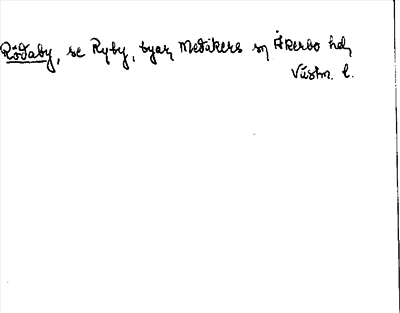 Rödaby, se Ryby, byar, Medåkers sn Åkerbo hd,
Västm. l.